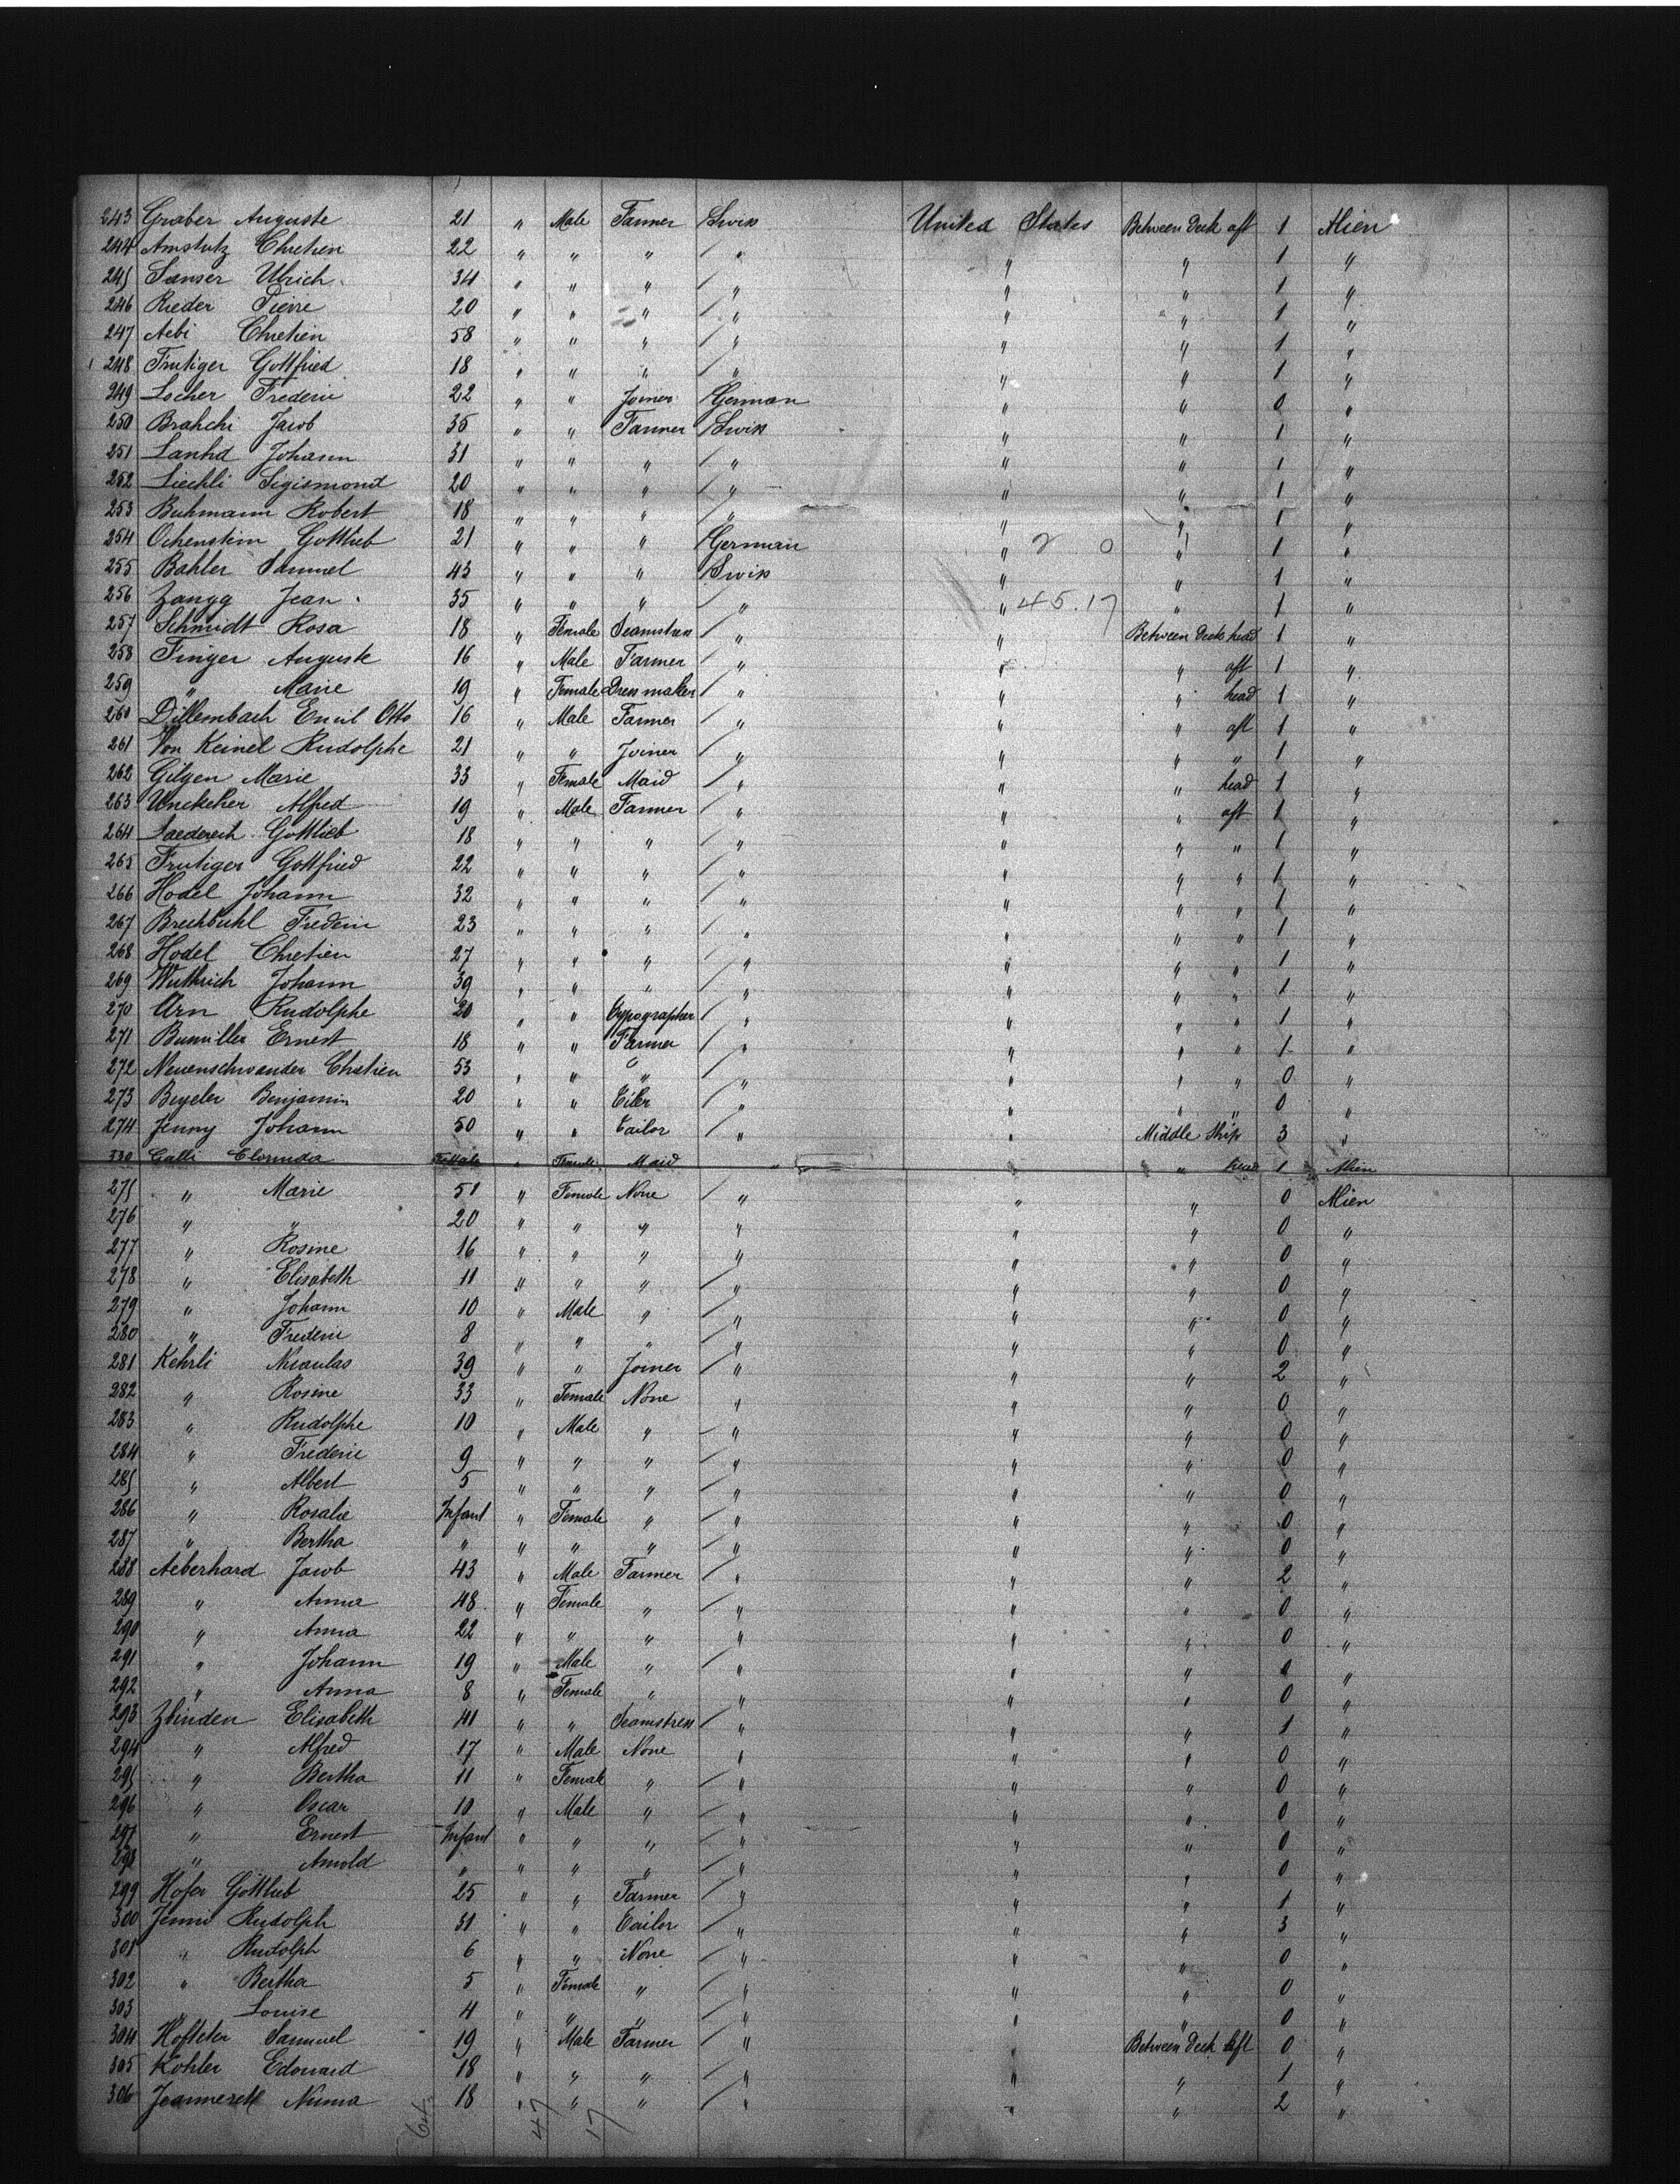 243 Graber Auguste 21 " Male Farmer / Swiss United States Between Deck aft 1 Alien
244 Amstutz Chretien 22 " " " / " " " 1 "
245 Sanser Ulrich 34 " " " / " " " 1 "
246 Rieder Pierre 20 " " " / " " " 1 "
247 Aebi Chretien 58 " " " / " " " 1 "
248 Frutiger Gottfried 18 " " " / " " " 1 "
249 Locher Frederic 22 " " Joiner / German " " 0 "
250 Brahchi Jacob 35 " " Farmer / Swiss " " 1 "
251 Johann 31 " " " / " " " 1 "
252 Liechli Sigismond 20 " " " / " " " 1 "
253 Buhmann Robert 18 " " " / " " " 1 "
254 Ochenstein Gottlieb 21 " " " / German " 2 0 " 1 "
255 Bahler Samuel 43 " " " / Swiss " " 1 "
256 Zangg Jean 35 " " " / " " 45.17 " 1 "
257 Schmidt Rosa 18 " Female Seamstress / " " Between Deck head 1 "
258 Finger Auguste 16 " Male Farmer / " " " aft 1 "
259 " Marie 19 " Female Dress maker / " " " head 1 "
260 Dillembach Emil Otto 16 " Male Farmer / " " " aft 1 "
261 Von Keinel Rudolphe 21 " " Joiner / " " " " 1 "
262 Gilgen Marie 33 " Female Maid / " " " head 1 "
263 Alfred 19 " Male Farmer / " " " aft 1 "
264 Laederich Gottlieb 18 " " " / " " " " 1 "
265 Frutiger Gottfried 22 " " " / " " " " 1 "
266 Hodel Johann 32 " " " / " " " " 1 "
267 Brechbuhl Frederic 23 " " " / " " " " 1 "
268 Hodel Chretien 27 " " " / " " " " 1 "
269 Wuthrich Johann 39 " " " / " " " " 1 "
270 Arn Rudolphe 20 " " Typographer / " " " " 1 "
271 Bumiller Ernest 18 " " Farmer / " " " " 1 "
272 Neuenschwander Chretien 53 " " " / " " " " 0 "
273 Beyeler Benjamin 20 " " Tiler / " " " " 0 "
274 Jenny Johann 50 " " Tailor / " " Middle Ship 3 "
330 Galli Clorinda " Female Maid " " " head 1 Alien
275 " Marie 51 " Female None / " " " 0 Alien
276 " " 20 " " " / " " " 0 "
277 " Rosine 16 " " " / " " " 0 "
278 " Elisabeth 11 " " " / " " " 0 "
279 " Johann 10 " Male " / " " " 0 "
280 " Frederic 8 " " " / " " " 0 "
281 Kehrli Nicaulas 39 " " Joiner / " " " 2 "
282 " Rosine 33 " Female None / " " " 0 "
283 " Rudolphe 10 " Male " / " " " 0 "
284 " Frederic 9 " " " / " " " 0 "
285 " Albert 5 " " " / " " " 0 "
286 " Rosalie Infant " Female " / " " " 0 "
287 " Bertha " " " " / " " " 0 "
288 Aeberhard Jacob 43 " Male Farmer / " " " 2 "
289 " Anna 48 " Female " / " " " 0 "
290 " Anna 22 " " " / " " " 0 "
291 " Johann 19 " Male " / " " " "
292 " Anna 8 " Female " / " " " 0 "
293 Zbinden Elisabeth 41 " " Seamstress / " " " 1 "
294 " Alfred 17 " Male None / " " " 0 "
295 " Bertha 11 " Female " / " " " 0 "
296 " Oscar 10 " Male " / " " " 0 "
297 " Ernest Infant " " " / " " " 0 "
298 " Arnold " " " " / " " " 0 "
299 Hofer Gottlieb 25 " " Farmer / " " " 1 "
300 Jenni Rudolph 31 " " Tailor / " " " 3 "
301 " Rudolph 6 " " None / " " " 0 "
302 " Bertha 5 " Female " / " " " 0 "
303 " Louise 4 " " " / " " " 0 "
304 Hofteter Samuel 19 " Male Farmer / " " Between Deck aft 0 "
305 Kohler Edouard 18 " " " / " " " 1 "
306 Jeanneret Numa 18 " " " / " " " 2 "
64. 47 17